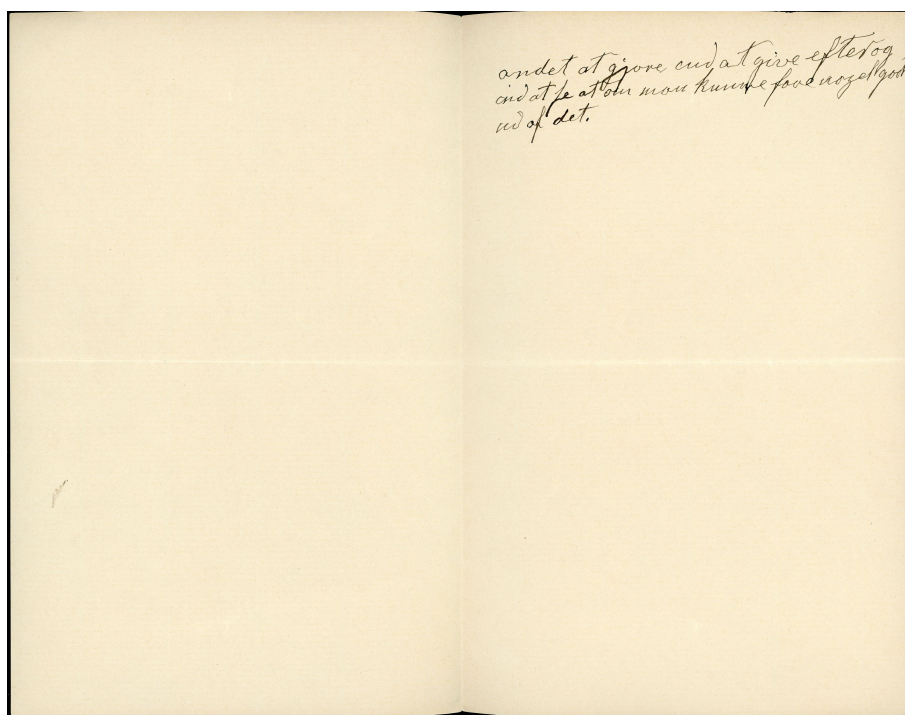 andet at gjøre end at give efter og
end at se at om man kunne faae noget godt
ud af det.